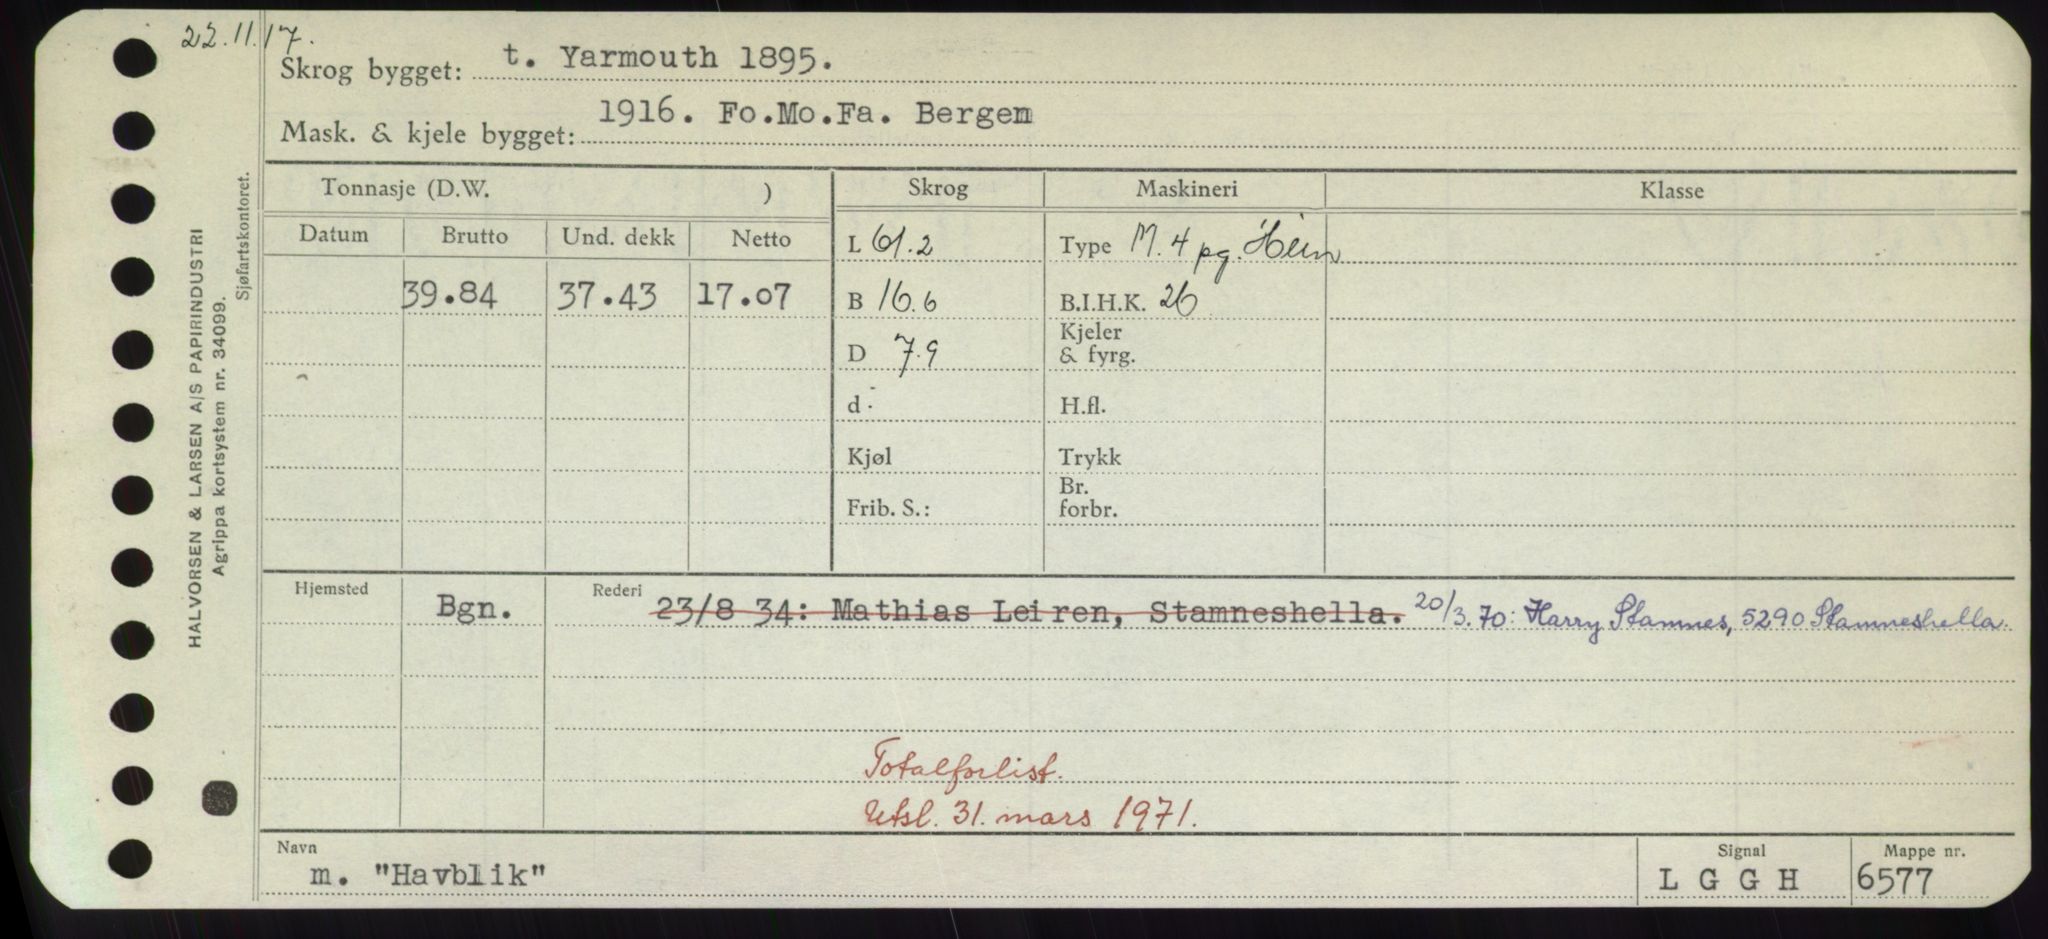 22.11.17.
Skrog bygget: t. Yarmouth 1895.
Mask. & kjele bygget: 1916. Fo.Mo.Fa. Bergen
HALVORSEN & LARSEN A/S PAPIRINDUSTRI
Agrippa kortsystem nr. 34099.
Sjøfartskontoret.
Tonnasje (D.W. ) Skrog Maskineri Klasse
Datum Brutto Und. dekk Netto
L 61.2 Type M. 4 pg. Hein
39.84 37.43 17.07 B 16.6 B.I.H.K. 26
D 7.9 Kjeler & fyrg.
d. H.fl.
Kjøl Trykk
Frib. S.: Br. forbr.
Hjemsted Bgn. Rederi 23/8 34: Mathias Leiren, Stamneshella. 20/3. 70: Harry Stamnes, 5290 Stamneshella.
Totalforlist.
Utsl. 31. mars 1971.
Navn Signal Mappe nr.
m. "Havblik" L G G H 6577